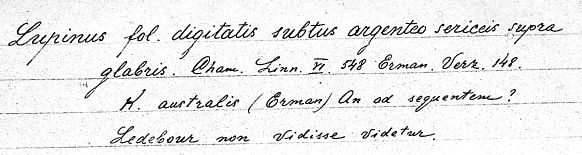 Lupinus fol. digitatis subtus argenteo sericeis supra
glabris. Cham. Linn. VI. 548 Erman. Verz. 148.
K. australis (Erman) An od sequentem?
Ledebour non vidisse videtur.